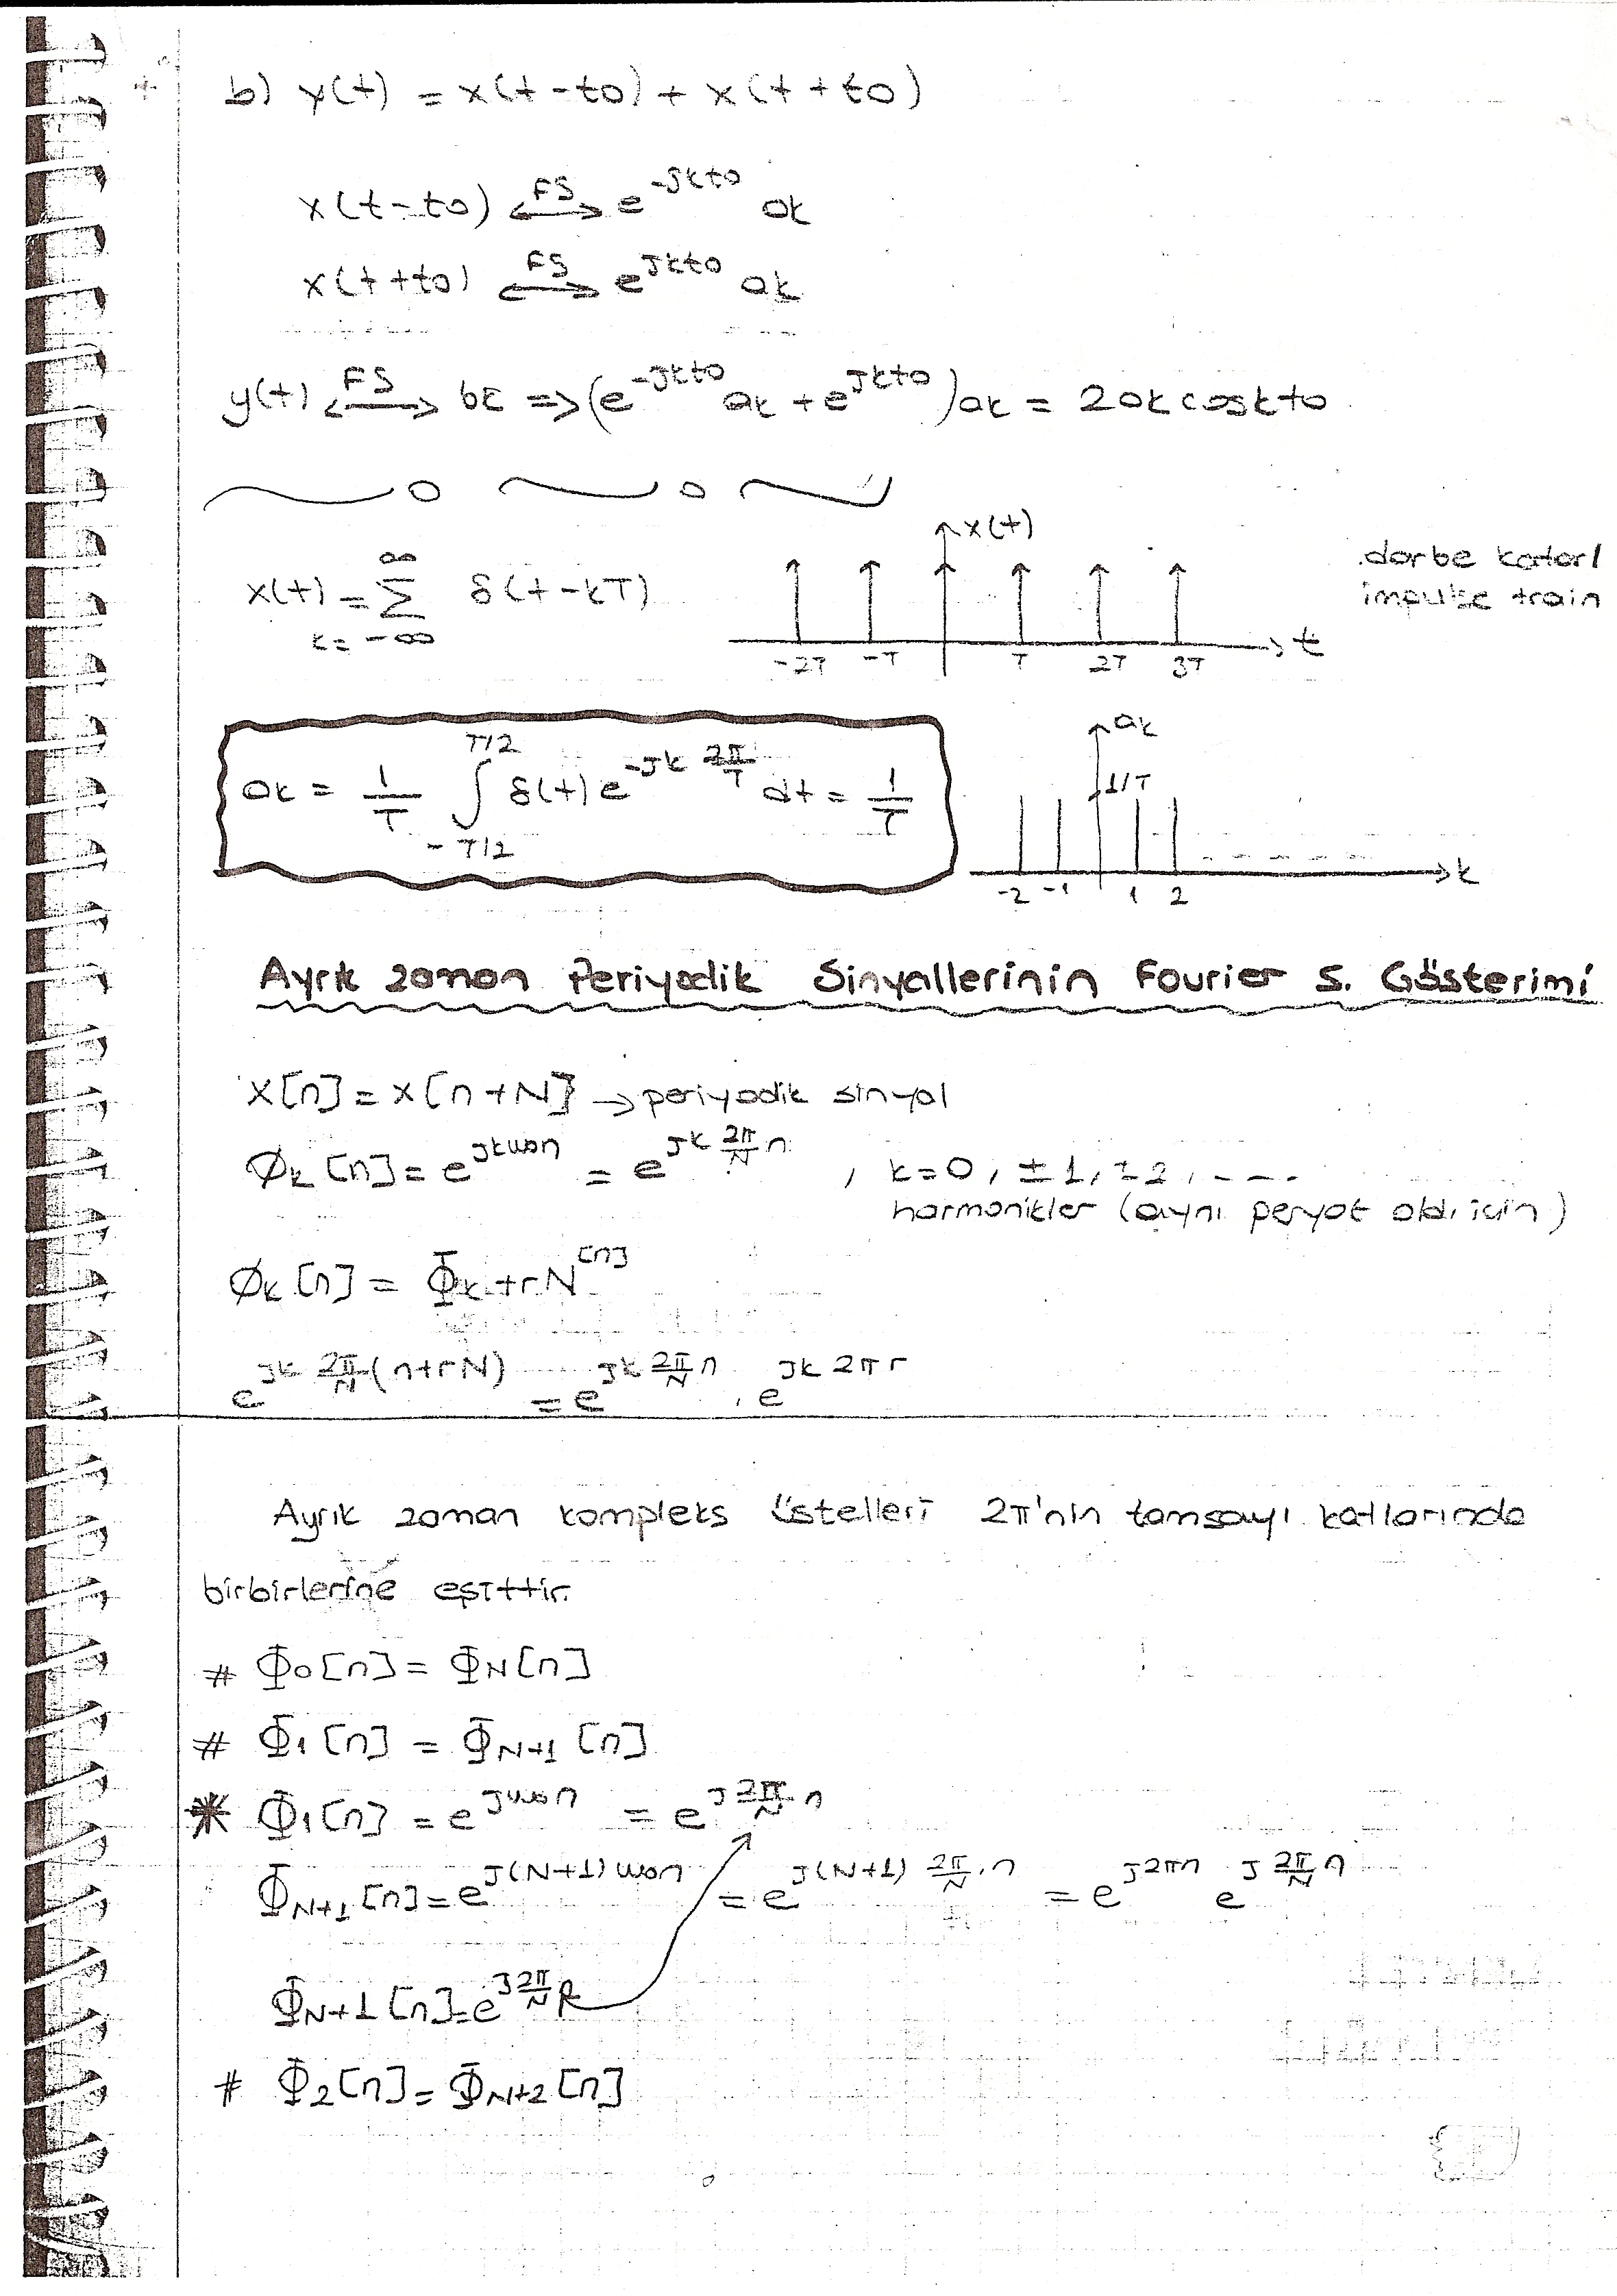 b) y(t) = x(t-t0) + x(t+t0)
x(t-t0) <-FS-> e^-jkt0 ak
x(t+t0) <-FS-> e^jkt0 ak
y(t) <-FS-> bk => (e^-jkt0 ak + e^jkt0) ak = 2ak coskt0
x(t)
x(t) = ∞ Σ k=-∞ δ(t-kT)
darbe katarı
impulse train
-2T -T T 2T 3T t
ak
ak = 1/T ∫ T/2 -T/2 δ(t) e^-jk 2π/T dt = 1/T
1/T
-2 -1 1 2 k
Ayrık zaman Periyodik Sinyallerinin Fourier S. Gösterimi
x[n] = x[n+N] → periyodik sinyal
Øk[n] = e^jkw0n = e^jk 2π/N n , k=0, ±1, ±2, ----
harmonikler (aynı peryot old. için)
Øk[n] = Φk+rN [n]
e^jk 2π/N (n+rN) = e^jk 2π/N n . e^jk2πr
Ayrık zaman kompleks üstelleri 2π'nin tamsayı katlarında
birbirlerine eşittir.
# Φ0[n] = ΦN[n]
# Φ1[n] = ΦN+1[n]
* Φ1[n] = e^jw0n = e^j 2π/N n
ΦN+1[n] = e^j(N+1)w0n = e^j(N+1) 2π/N .n = e^j2πn e^j 2π/N n
ΦN+1[n] = e^j 2π/N n
# Φ2[n] = ΦN+2[n]